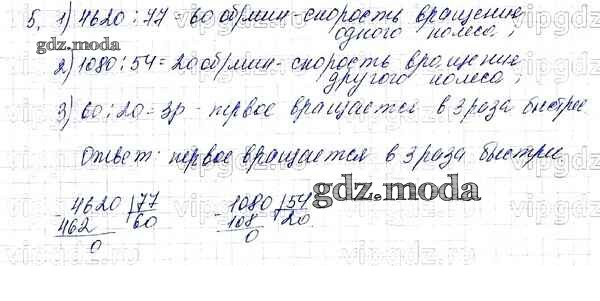 5. 1) 4620 : 77 = 60 об/мин - скорость вращения
одного колеса;
gdz.moda
2) 1080 : 54 = 20 об/мин - скорость вращения
другого колеса;
3) 60 : 20 = 3р - первое вращается в 3 раза быстрее
Ответ: первое вращается в 3 раза быстрее
gdz.moda
- 4620 | 77
462 | 60
0
- 1080 | 54
108 | 20
0